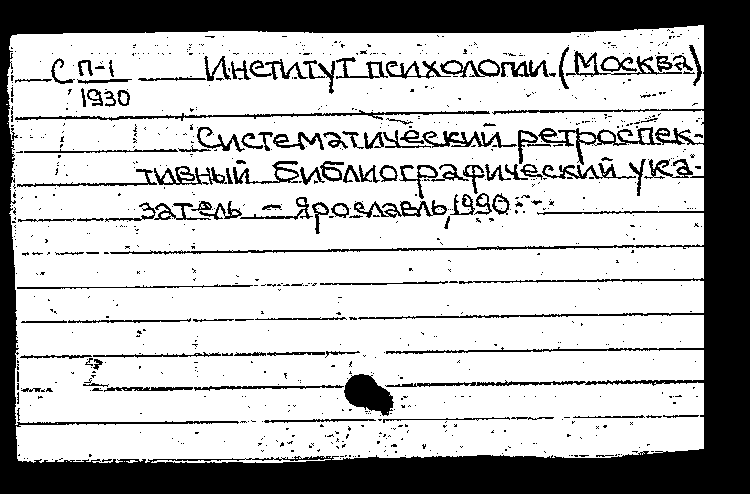 С П-1 Институт психологии. (Москва)
1930
Систематический ретроспек-
тивный библиографический ука-
затель. - Ярославль, 1990.